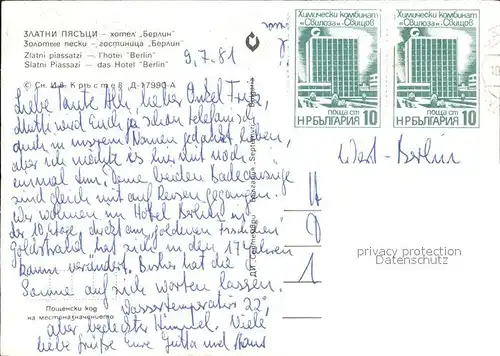 ЗЛАТНИ ПЯСЪЦИ — хотел „Берлин"
Золотые пески — гостиница „Берлин"
Zlatni piassatzi — l'hotel "Berlin"
Slatni Piassazi — das Hotel "Berlin"
9.7.81
© Сн. Ив. Кръстев Д-17990-А
Liebe Tante Ali, lieber Onkel Fritz,
Mutti wird Euch ja schon telefonisch
auch in unserem Namen gedankt haben,
aber ich möchte es hiermit noch
einmal tun. Deine beiden Badeanzüge
sind gleich mit auf Reisen gegangen.
Wir wohnen im Hotel Berlin in
der 10. Etage, direkt am „goldenen Friedinen"
Goldstrand hat sich in den 17 Jahren
kaum verändert. Bisher hat die
Sonne auf sich warten lassen.
Wassertemperatur 22°,
aber bedeckter Himmel. Viele
liebe Grüße Eure Jutta und Hans
Пощенски код
на местоназначението
ДИ „Септември" България
Химически комбинат
„Свилоза"-Свищов
ПОЩА СТ
НР БЪЛГАРИЯ 10
Химически комбинат
„Свилоза"-Свищов
ПОЩА СТ
НР БЪЛГАРИЯ 10
West-Berlin
privacy protection
Datenschutz